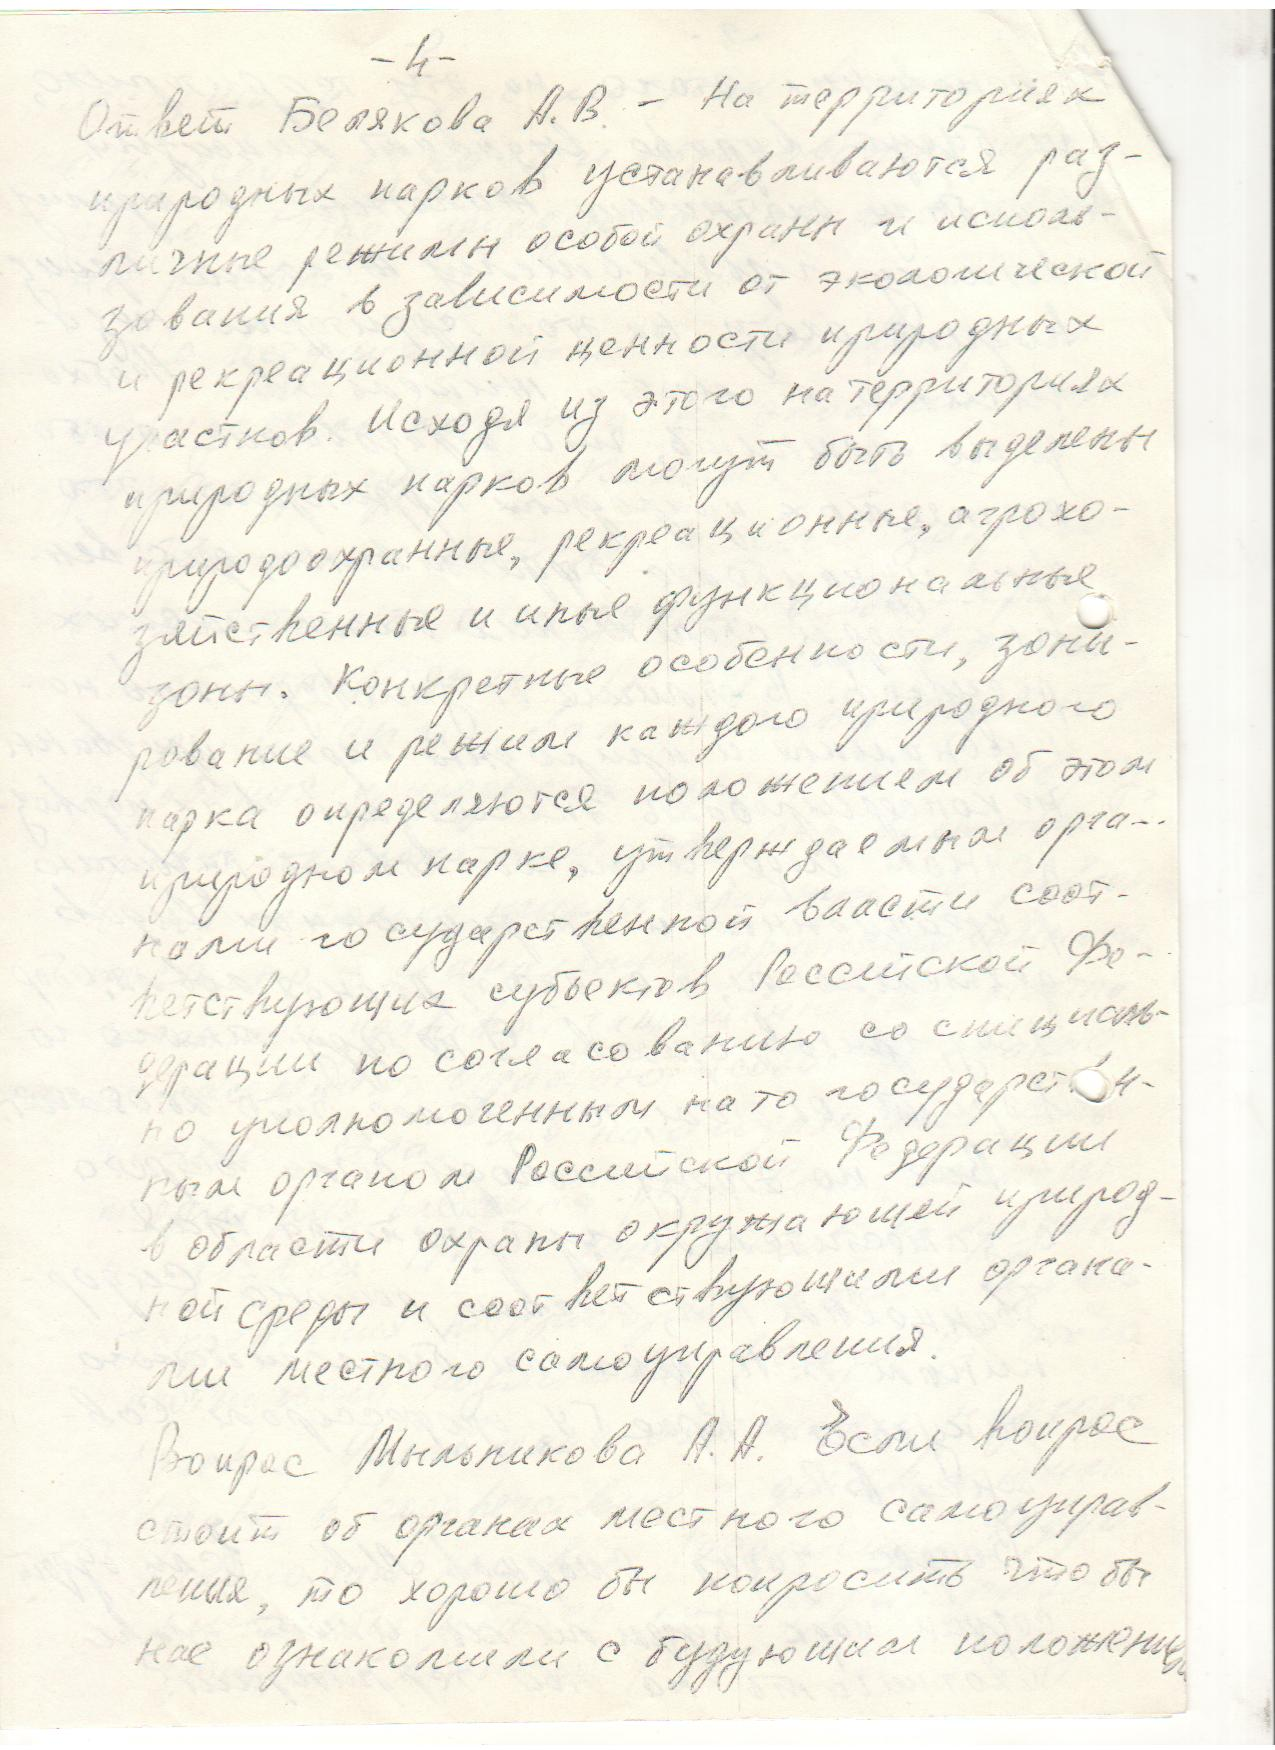 -4-
Ответ Белякова А.В. - На территориях
природных парков устанавливаются раз-
личные режимы особой охраны и исполь-
зования в зависимости от экологической
и рекреационной ценности природных
участков. Исходя из этого на территориях
природных парков могут быть выделены
природоохранные, рекреационные, агрохо-
зяйственные и иные функциональные
зоны. Конкретные особенности, зони-
рование и режим каждого природного
парка определяются положением об этом
природном парке, утверждаемым орга-
нами государственной власти соот-
ветствующих субъектов Российской Фе-
дерации по согласованию со специаль-
но уполномоченным на то государствен-
ным органом Российской Федерации
в области охраны окружающей природ-
ной среды и соответствующими органа-
ми местного самоуправления.
Вопрос Мыльникова А.А. Если вопрос
стоит об органах местного самоуправ-
ления, то хорошо бы попросить чтобы
нас ознакомили с будующим положением